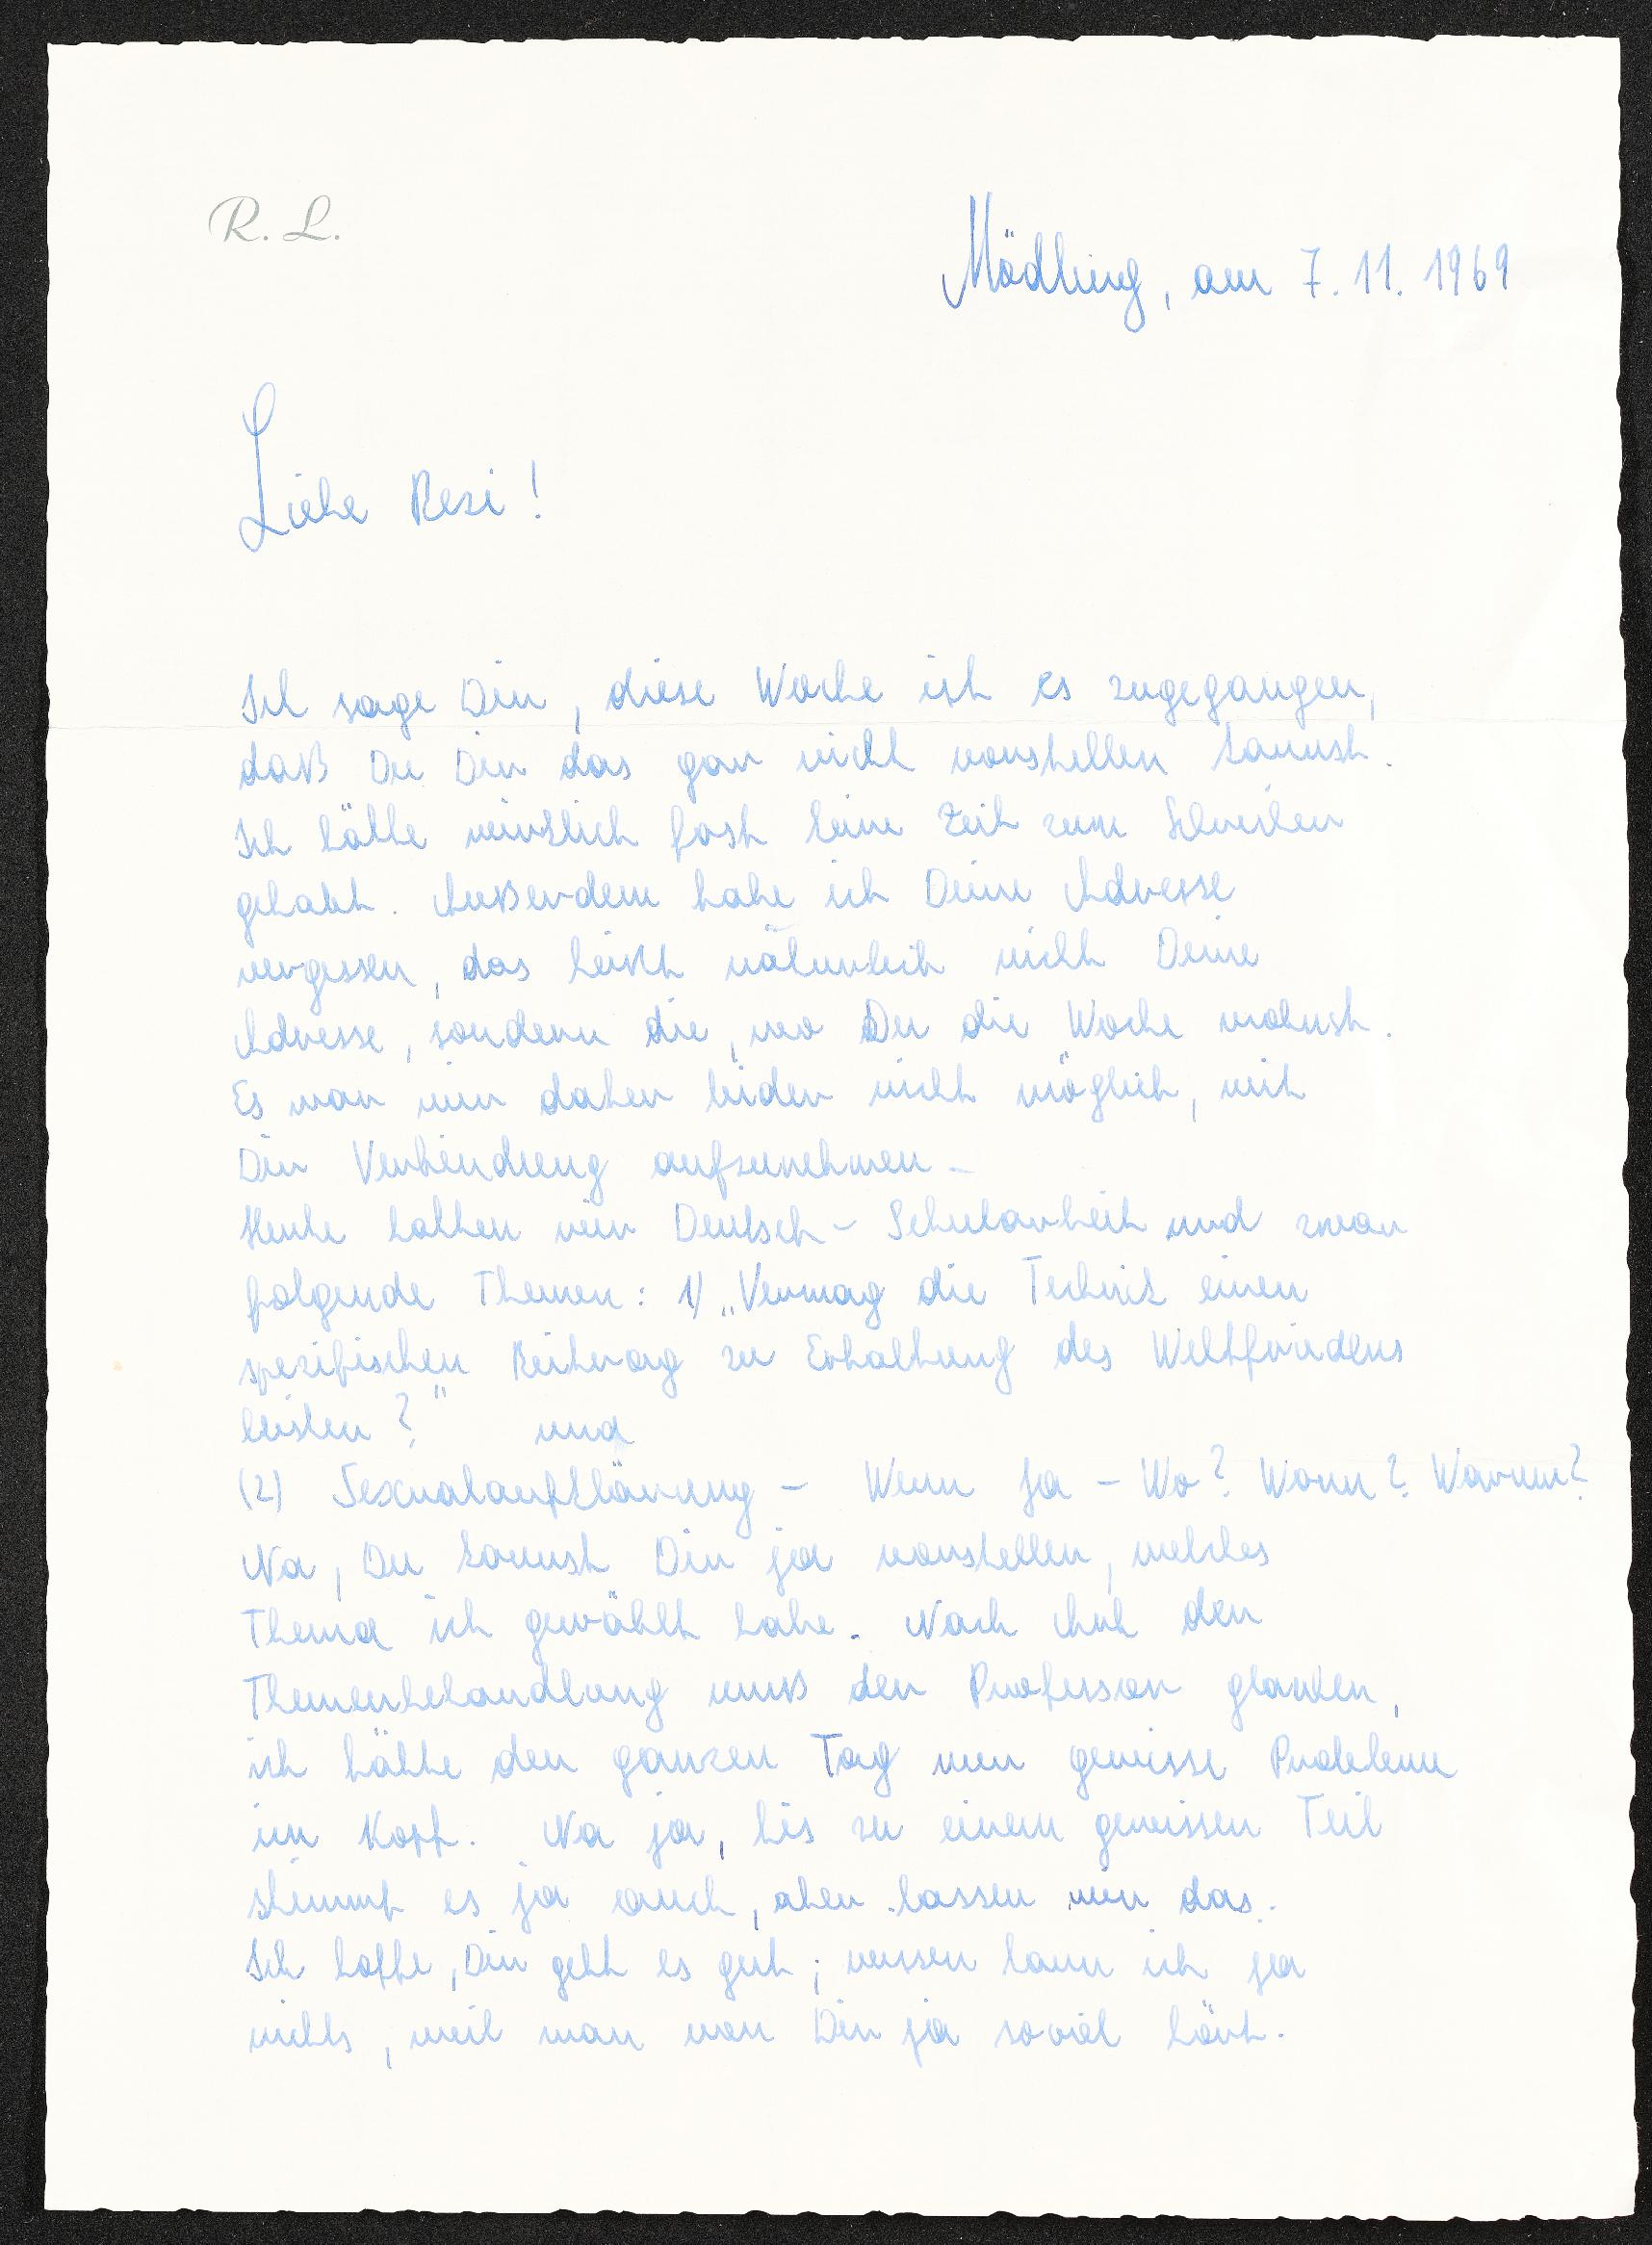 R. L.
Mödling, am 7. 11. 1969
Liebe Resi!
Ich sage Dir, diese Woche ist es zugegangen,
daß Du Dir das gar nicht vorstellen kannst.
Ich hätte wirklich fast keine Zeit zum Schreiben
gehabt. Außerdem habe ich Deine Adresse
vergessen, das heißt nämlich nicht Deine
Adresse, sondern die, wo Du die Woche wohnst.
Es war mir daher leider nicht möglich, mit
Dir Verbindung aufzunehmen.
Heute hatten wir Deutsch-Schularbeit und zwar
folgende Themen: 1) „Vermag die Technik einen
spezifischen Beitrag zu Erhaltung des Weltfriedens
leisten?" und
(2) Sexualaufklärung - Wenn ja - Wo? Wann? Warum?
Na, Du kannst Dir ja vorstellen, welches
Thema ich gewählt habe. Nach der
Themenbehandlung muß der Professor glauben,
ich hätte den ganzen Tag nur gewisse Probleme
im Kopf. Na ja, bis zu einem gewissen Teil
stimmt es ja auch, aber lassen wir das.
Ich hoffe, Dir geht es gut; wissen kann ich ja
nichts, weil man von Dir ja soviel hört.